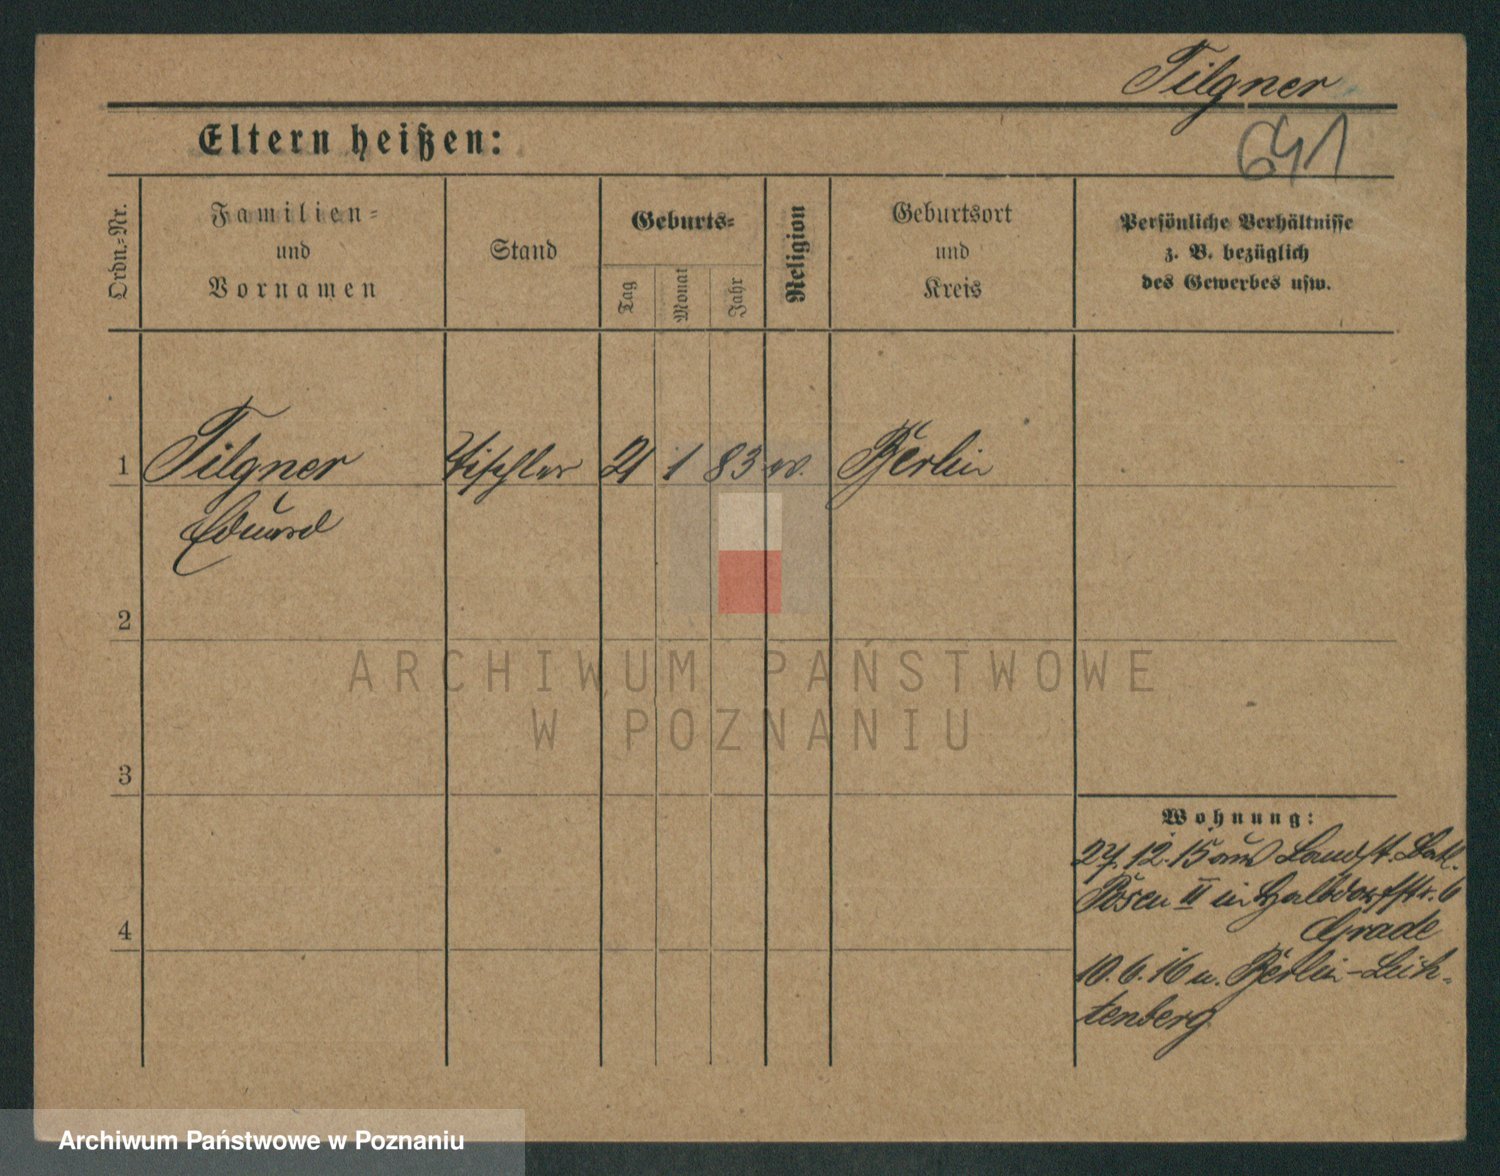 Tilgner
Eltern heißen:
641
Ordn.-Nr.
Familien-
und
Vornamen
Stand
Geburts-
Tag
Monat
Jahr
Religion
Geburtsort
und
Kreis
Persönliche Verhältnisse
z. B. bezüglich
des Gewerbes usw.
1 Tilgner Tischler 21 1 83 ev. Berlin
Eduard
2
3
4
Wohnung:
27.12.15 aus Landst. Batl.
Posen II in Halbdorfstr. 6
Grade
10.6.16 n. Berlin-Lich-
tenberg
ARCHIWUM PAŃSTWOWE
W POZNANIU
Archiwum Państwowe w Poznaniu